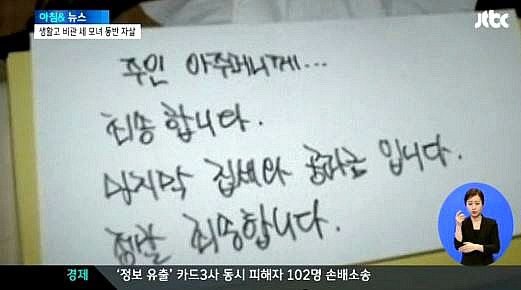 아침& 뉴스
생활고 비관 세 모녀 동반 자살
jtbc
주인 아주머니께...
죄송합니다.
마지막 집세와 공과금 입니다.
정말 죄송합니다.
경제 '정보 유출' 카드3사 동시 피해자 102명 손배소송